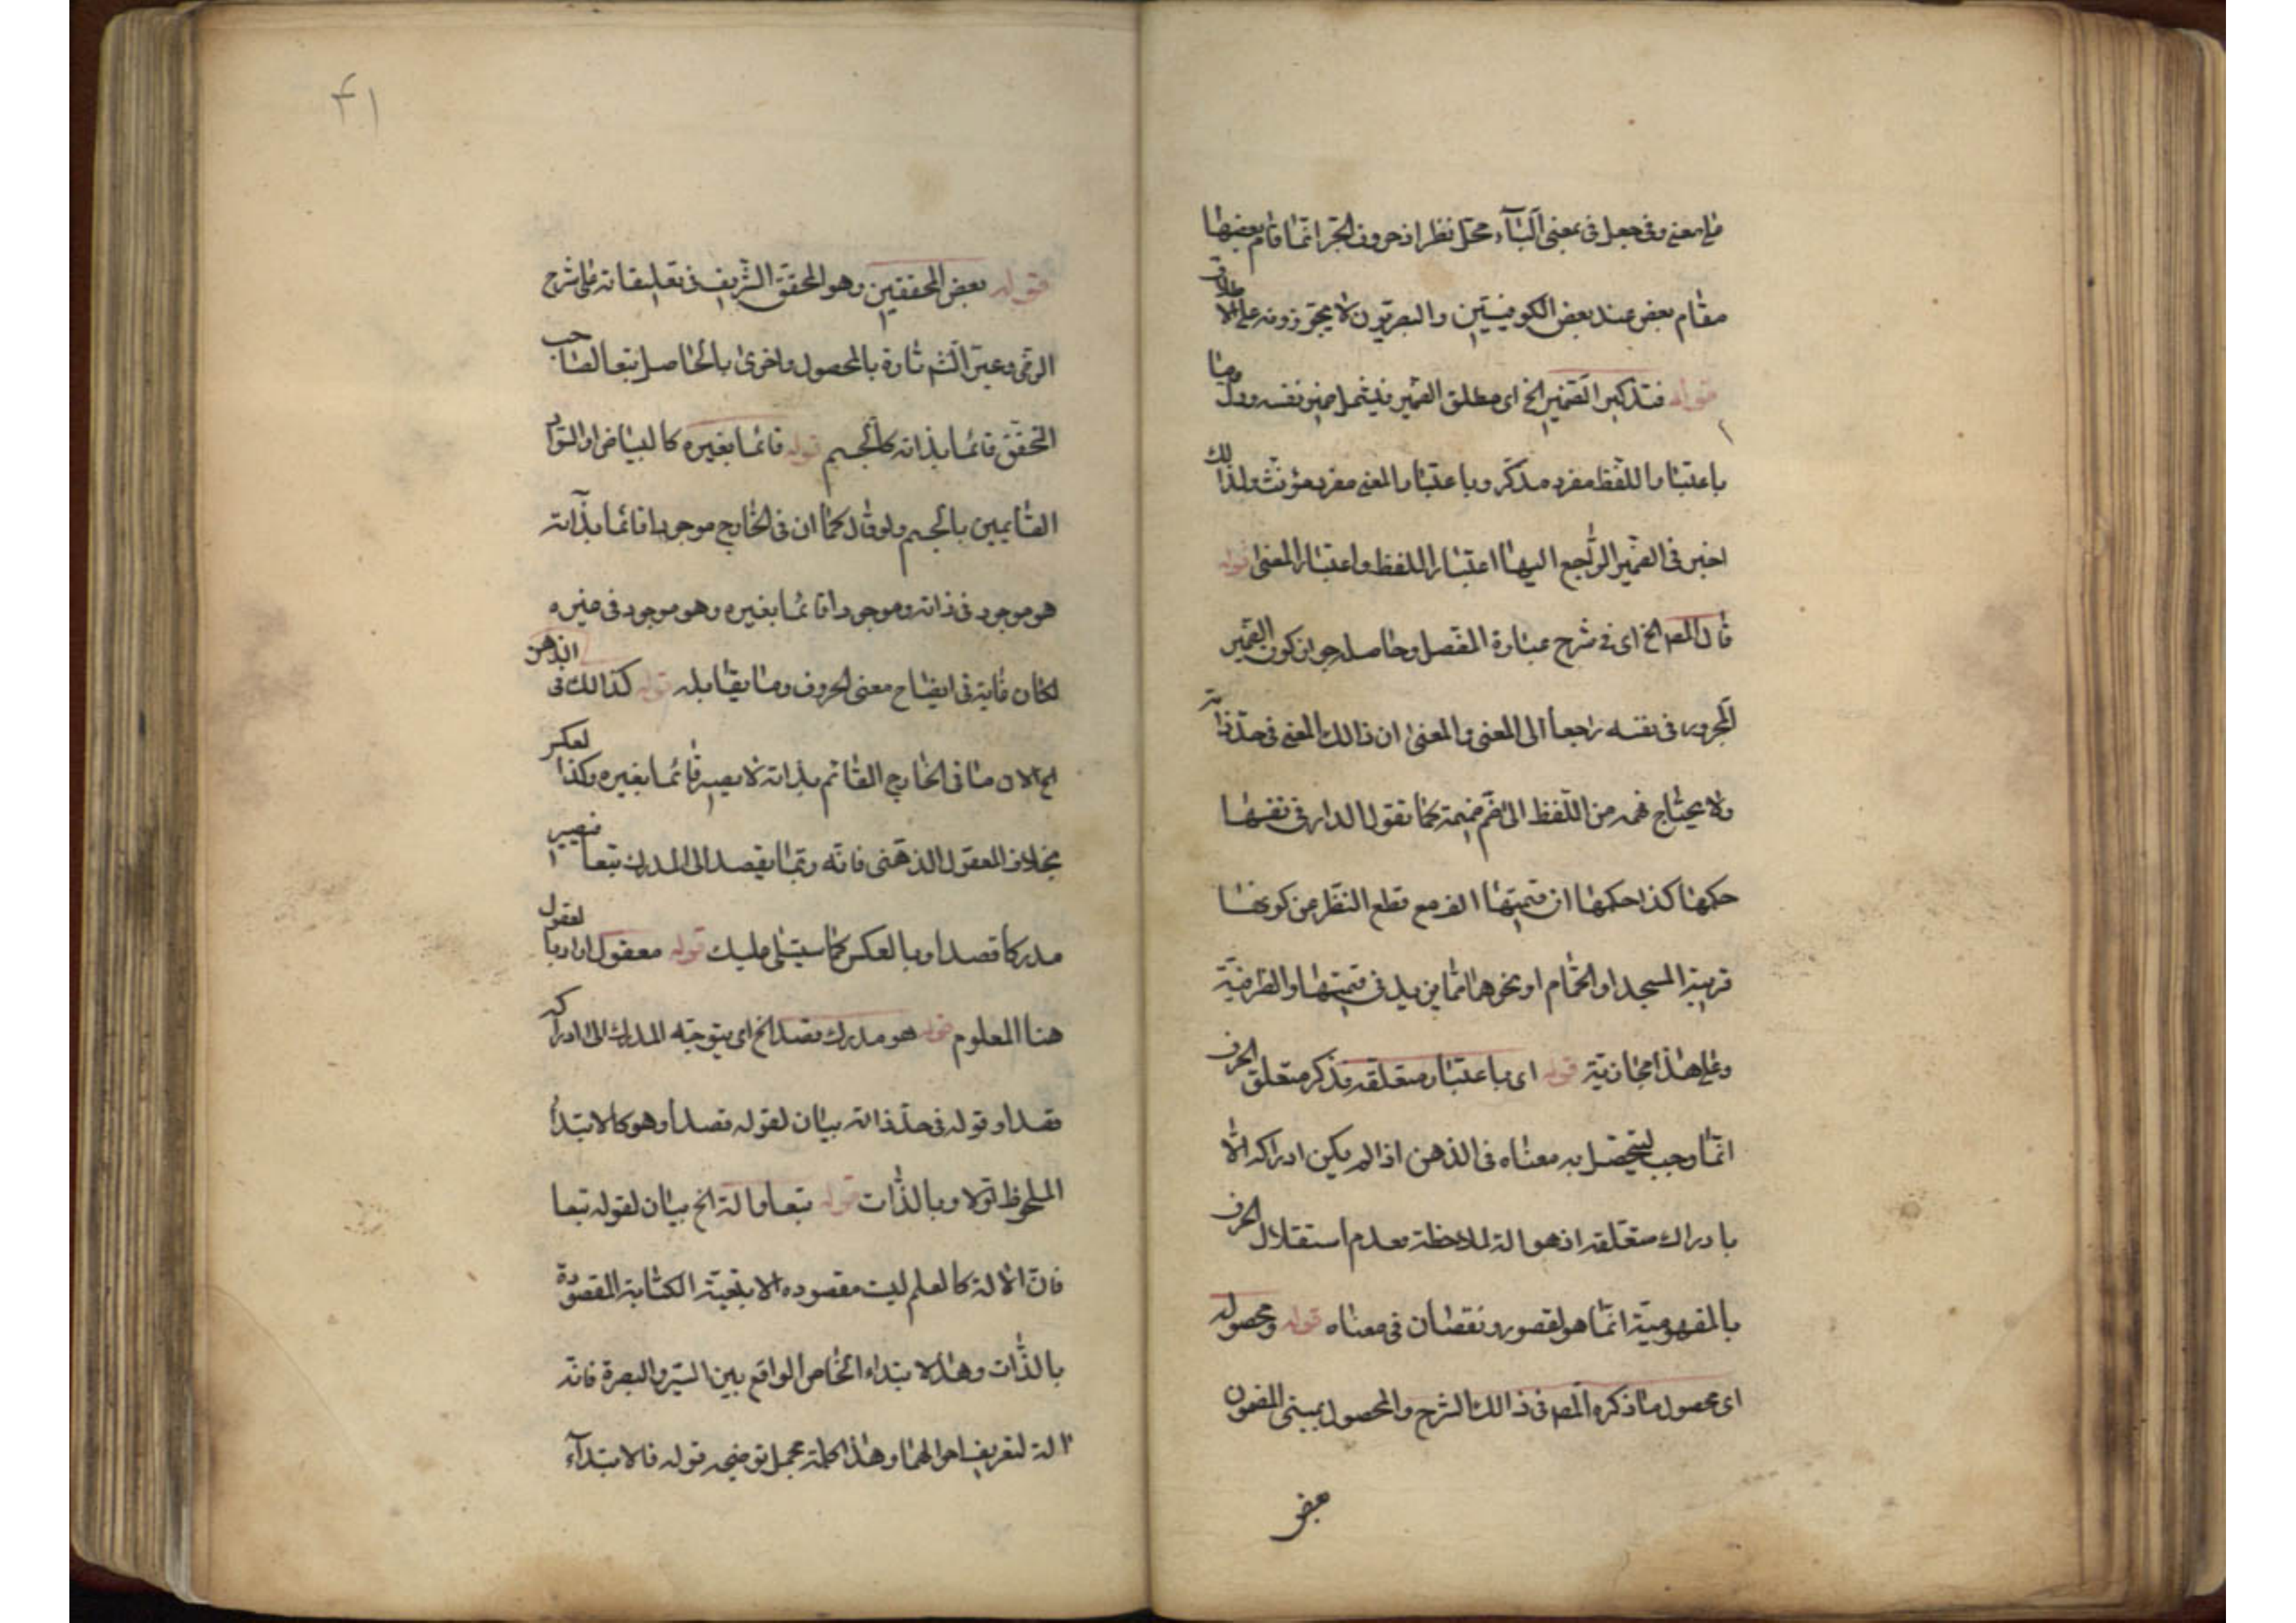 على معنى وفى جعل فى بمعنى البآء محل نظر اذ حروف الجر انما قام بعضها
مقام بعض عند بعض الكوفيين والبصريون لا يجوزونه على الاطلاق
قوله فتذكير الضمير الخ اى مطلق الضمير فيشمل ضمير نفسه ودل وما
باعتبار اللفظ مفرد مذكر وباعتبار المعنى مفرد مؤنث ولذالك
اختير فى الضمير الراجع اليها اعتبار اللفظ واعتبار المعنى قوله
قال المص الخ اى فى شرح عبارة المفصل وحاصله جواز كون الضمير
المجرور فى نفسه راجعا الى المعنى والمعنى ان ذالك المعنى فى حد ذاته
ولا يحتاج فهمه من اللفظ الى ضم ضميمة كما تقول الدار فى نفسها
حكمها كذا حكمها ان قيمتها الف مع قطع النظر من كونها
قريبة المسجد او الحمام او نحوهما مما يزيد فى قيمتها والظرفية
وعلى هذا مجازية قوله اى باعتبار متعلقه فذكر متعلق الحرف
انما وجب ليتحصل به معناه فى الذهن اذا لم يكن ادراكه الا
بادراك متعلقه اذ هو الة لملاحظته فعدم استقلال الحرف
بالمفهومية انما هو لقصور ونقصان فى معناه قوله ومحصوله
اى محصول ما ذكره المص فى ذالك الشرح والمحصول بمعنى المضمون
بعض
۴۱
قوله بعض المحققين وهو المحقق الشريف فى تعليقاته على شرح
الرضى وعبر الش تارة بالمحصول واخرى بالحاصل تبعا لصاحب
التحقق قائما بذاته كالجسم قوله قائما بغيره كالبياض والسواد
القايمين بالجسم ولو قال كما ان فى الخارج موجودا قائما بذاته
هو موجود فى ذاته وموجودا قائما بغيره وهو موجود فى غيره
لكان غاية فى ايضاح معنى الحروف وما يقابله قوله كذالك فى الذهن
الخ الا ان ما فى الخارج القائم بذاته لا يصير قائما بغيره وكذا لعكس
بخلاف المعقول الذهنى فانه ربما يقصد الى المدرك تبعا فيصير
مدركا قصدا وبالعكس كما سيتلى عليك قوله معقول اراد بالمعقول
هنا المعلوم قوله هو مدرك قصدا الخ اى يتوجه المدرك الى ادراكه
قصدا وقوله فى حد ذاته بيان لقوله قصدا وهو كالابتدأ
الملحوظ اولا وبالذات قوله تبعا والة الخ بيان لقوله تبعا
فان الالة كالعلم ليت مقصوده الا بتبعية الكتابة المقصودة
بالذات وهذا لابتداء الخاص الواقع بين السير والبصرة فانه
الة لتعريف احوالهما وهذا كلمة مجمل توضيحه قوله فالابتدآء